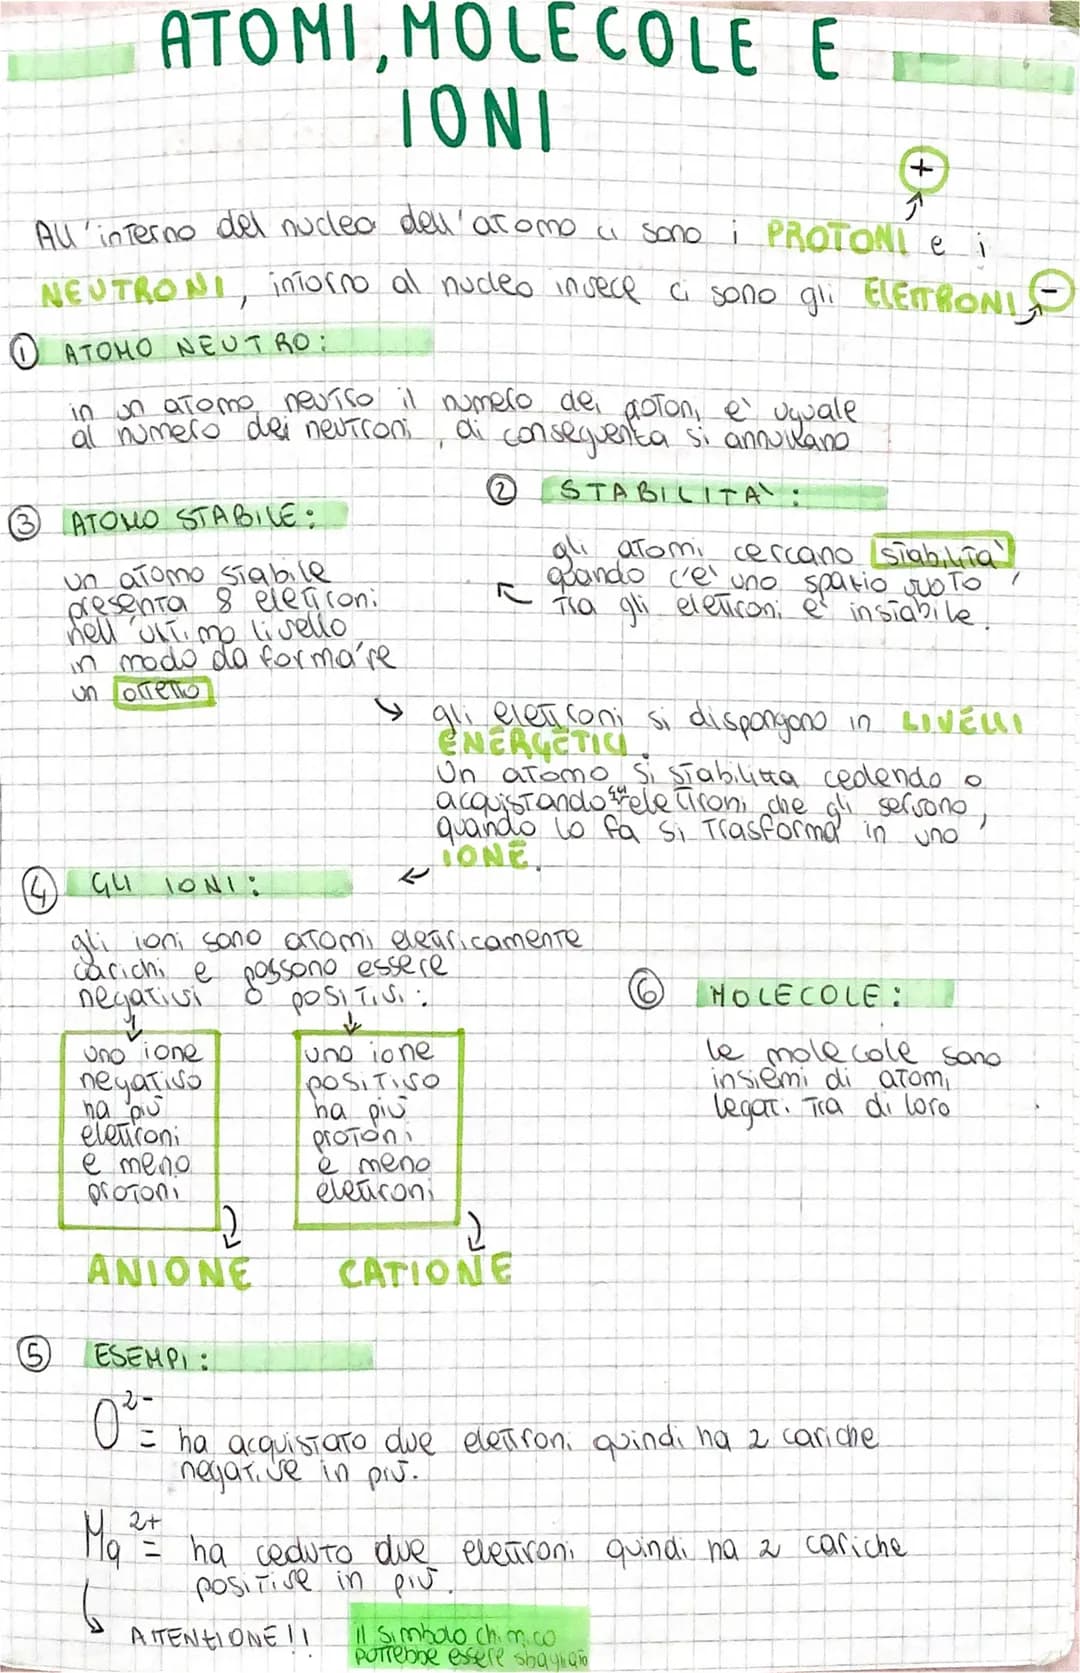 ATOMI, MOLECOLE E
IONI
+
All'interno del nucleo dell'atomo ci sono i PROTONI e i
NEUTRONI, intorno al nucleo invece ci sono gli ELETTRONI -
① ATOMO NEUTRO:
in un atomo neutro il numero dei protoni e' uguale
al numero dei neutroni, di conseguenza si annullano
② STABILITA':
gli atomi cercano stabilita',
quando c'e' uno spazio vuoto
tra gli elettroni e' instabile.
③ ATOMO STABILE:
un atomo stabile
presenta 8 elettroni
nell'ultimo livello
in modo da formare
un ottetto
gli elettroni si dispongono in LIVELLI
ENERGETICI.
Un atomo si stabilizza cedendo o
acquistando gli elettroni che gli servono,
quando lo fa si trasforma in uno
IONE.
④ GLI IONI:
gli ioni sono atomi elettricamente
carichi e possono essere
negativi o positivi:
uno ione
negativo
ha più
elettroni
e meno
protoni
ANIONE
uno ione
positivo
ha più
protoni
e meno
elettroni
CATIONE
⑥ MOLECOLE:
le molecole sono
insiemi di atomi
legati tra di loro
⑤ ESEMPI:
O²⁻ = ha acquistato due elettroni quindi ha 2 cariche
negative in più.
Mg²⁺ = ha ceduto due elettroni quindi ha 2 cariche
positive in più.
ATTENZIONE!! il simbolo chimico
potrebbe essere sbagliato